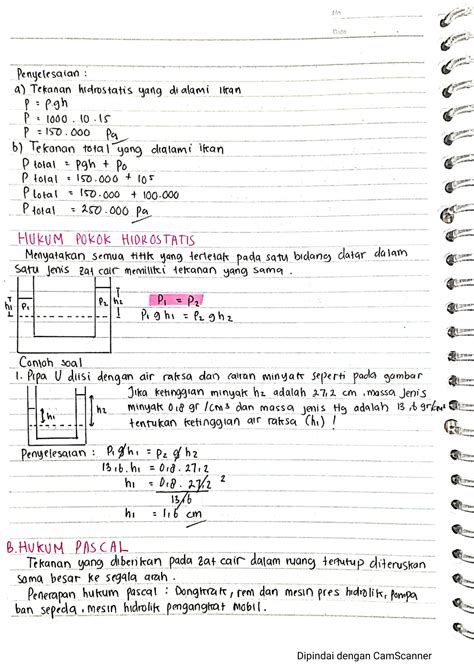 No
Date
Penyelesaian :
a) Tekanan hidrostatis yang dialami Ikan
P = ρgh
P = 1000 . 10 . 15
P = 150.000 Pa
b) Tekanan total yang dialami Ikan
P total = ρgh + Po
P total = 150.000 + 10⁵
P total = 150.000 + 100.000
P total = 250.000 Pa
HUKUM POKOK HIDROSTATIS
Menyatakan semua titik yang terletak pada satu bidang datar dalam
satu jenis zat cair memiliki tekanan yang sama.
h₁ P₁ P₂ h₂
P₁ = P₂
ρ₁ g h₁ = ρ₂ g h₂
Contoh soal
1. Pipa U diisi dengan air raksa dan cairan minyak seperti pada gambar
Jika ketinggian minyak h₂ adalah 27,2 cm, massa jenis
minyak 0,8 gr/cm³ dan massa jenis Hg adalah 13,6 gr/cm³
tentukan ketinggian air raksa (h₁) !
h₁ h₂
Penyelesaian : ρ₁ g h₁ = ρ₂ g h₂
13,6 . h₁ = 0,8 . 27,2
h₁ = 0,8 . 27,2 2
13,6
h₁ = 1,6 cm
B. HUKUM PASCAL
Tekanan yang diberikan pada zat cair dalam ruang tertutup diteruskan
sama besar ke segala arah.
Penerapan hukum pascal : Dongkrak, rem dan mesin pres hidrolik, pompa
ban sepeda, mesin hidrolik pengangkat mobil.
Dipindai dengan CamScanner